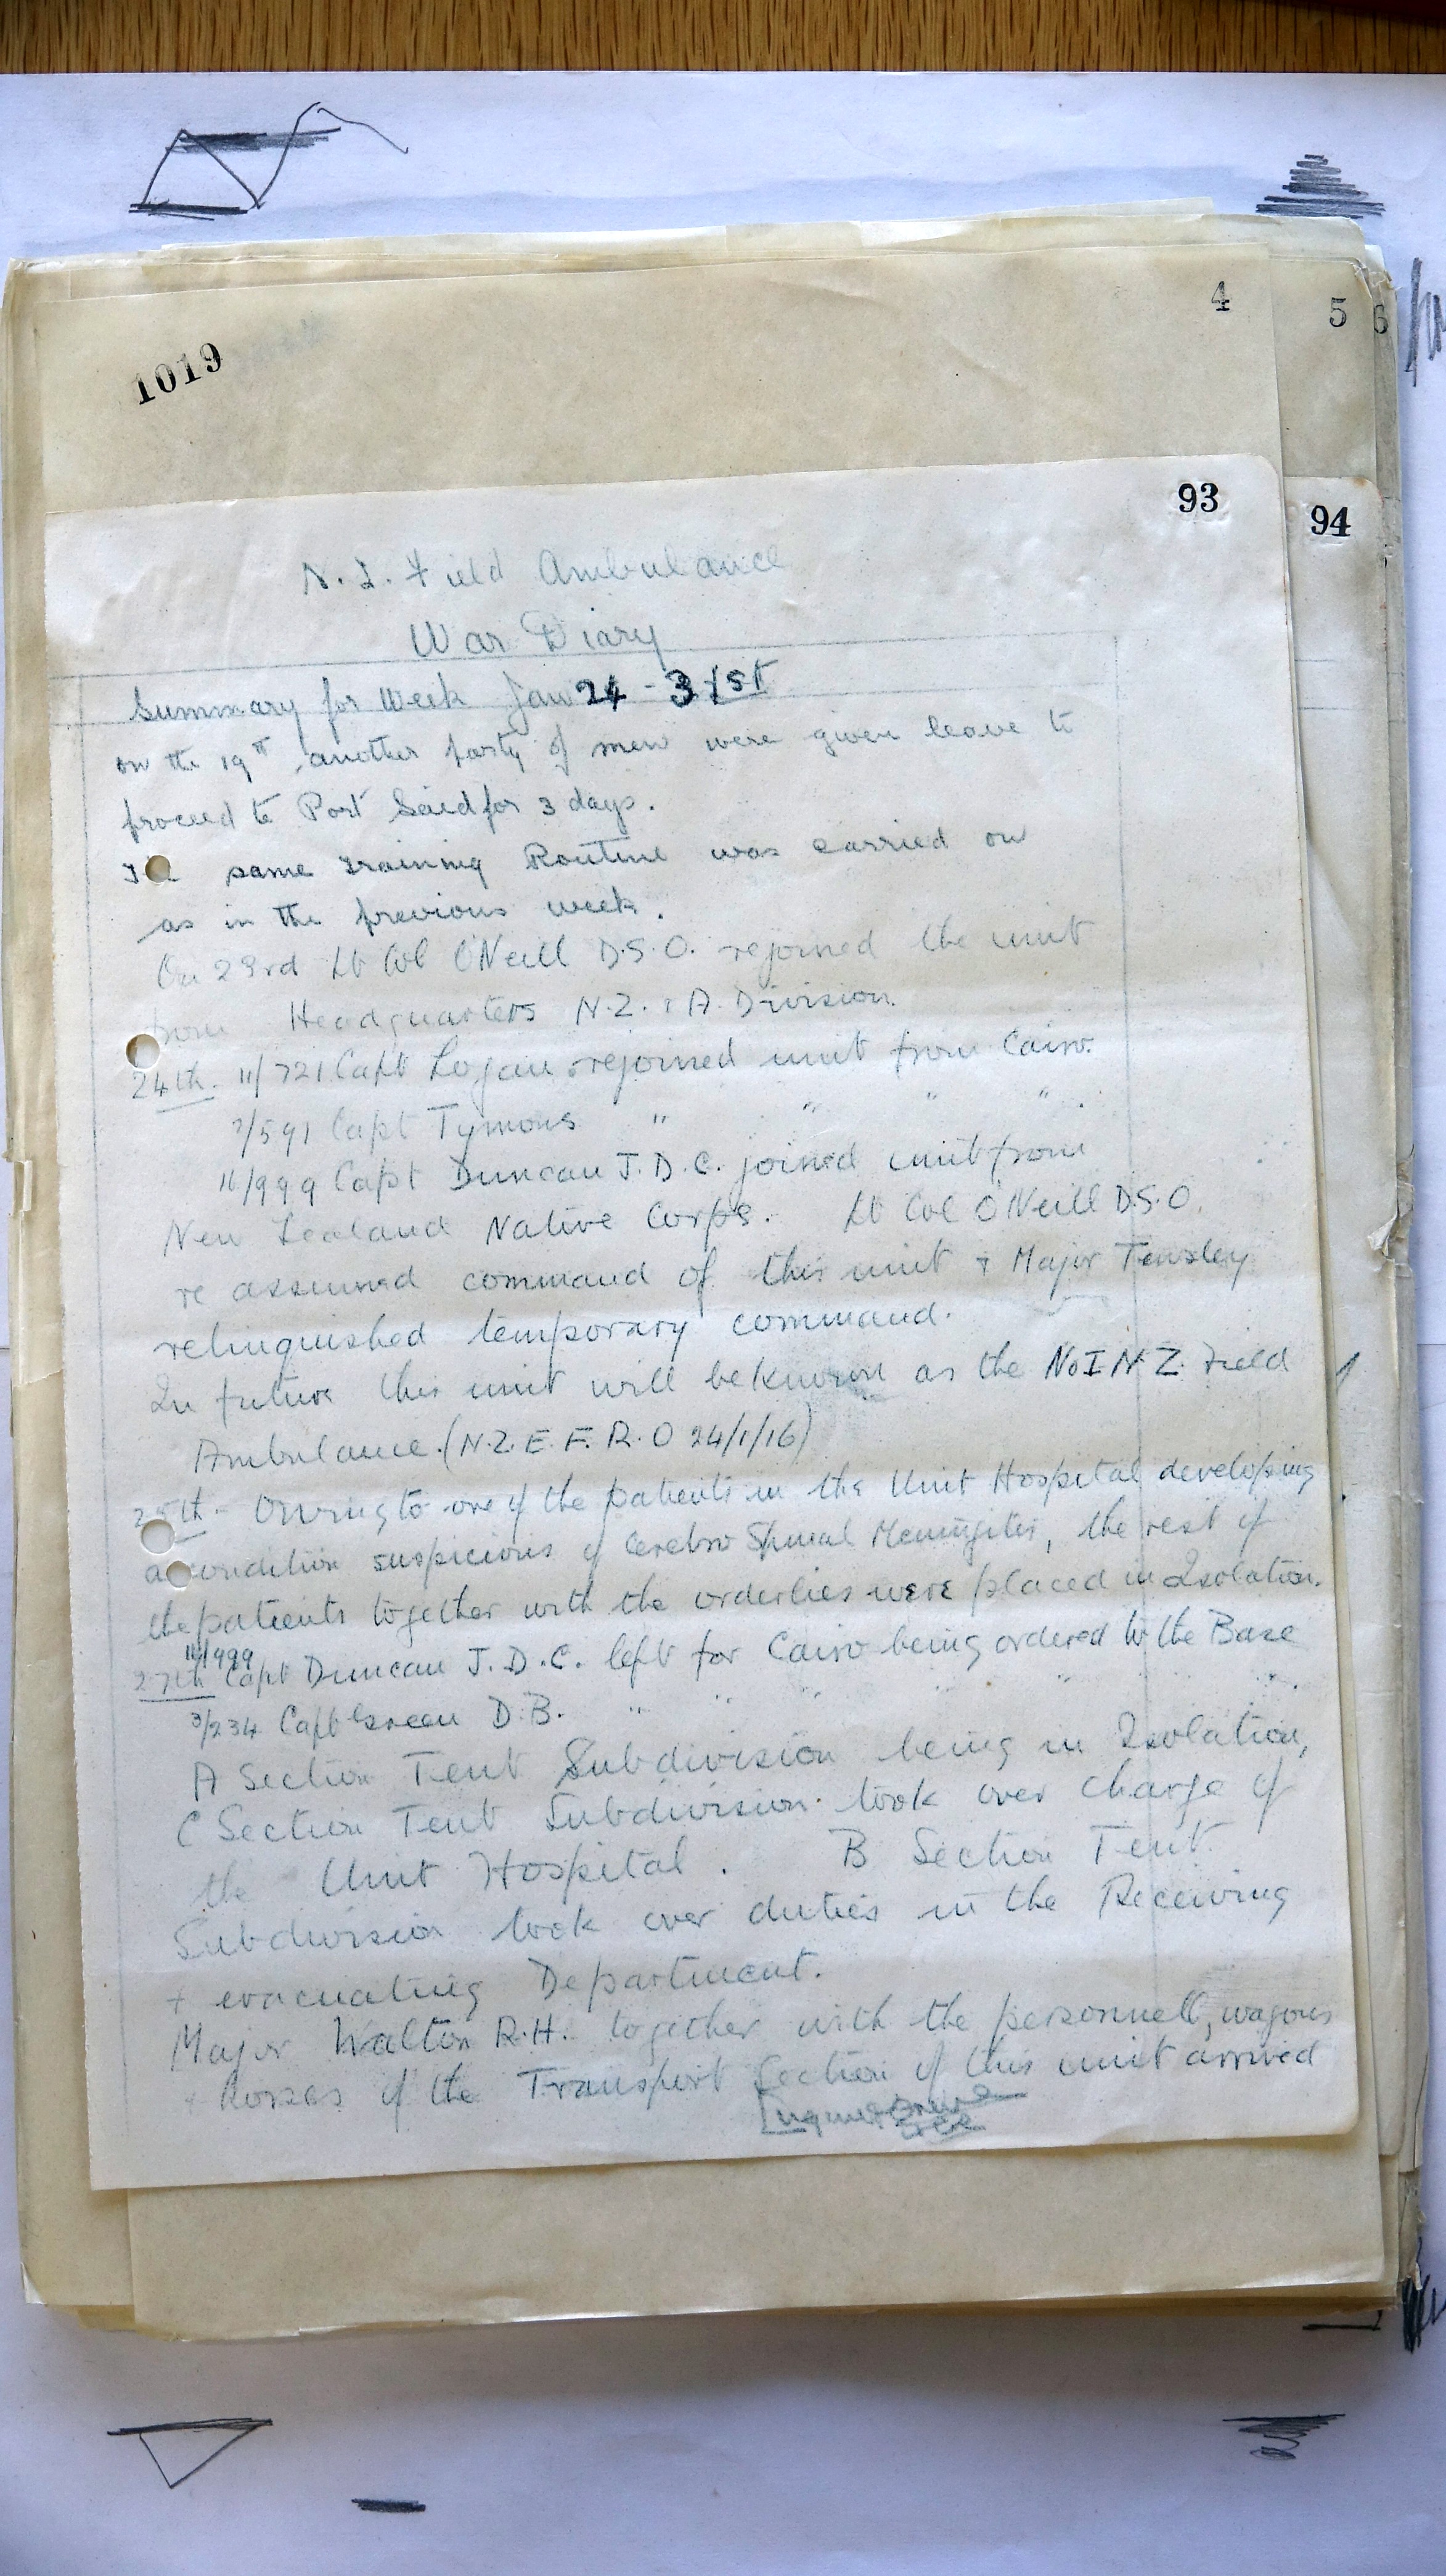 4
5
6
1019
93
94
N.Z. Field Ambulance
War Diary
Summary for Week Jan 24 - 31st
on the 19th another party of men were given leave to
proceed to Port Said for 3 days.
same training Routine was carried on
as in the previous week.
On 23rd Lt Col O'Neill D.S.O. rejoined the unit
from Headquarters N.Z. & A. Division.
24th. 11/721 Capt Logan rejoined unit from Cairo.
3/591 Capt Tymons " " " " .
11/999 Capt Duncan J.D.C. joined unit from
New Zealand Native Corps. Lt Col O'Neill D.S.O.
re assumed command of this unit & Major
relinquished temporary command.
In future this unit will be known as the No I N.Z. Field
Ambulance. (N.Z.E.F.R.O 24/1/16)
25th - Owing to one of the patients in the Unit Hospital developing
a condition suspicious of Cerebro Spinal Meningitis, the rest of
the patients together with the orderlies were placed in Isolation.
11/999
27th Capt Duncan J.D.C. left for Cairo being ordered to the Base
3/234 Capt Green D.B. " " " " " " .
A Section Tent Subdivision being in Isolation,
C Section Tent Subdivision took over charge of
the Unit Hospital. B Section Tent
Subdivision took over duties in the Receiving
+ evacuating Department.
Major Walton R.H. together with the personnell, wagons
& horses of the Transport Section of this unit arrived